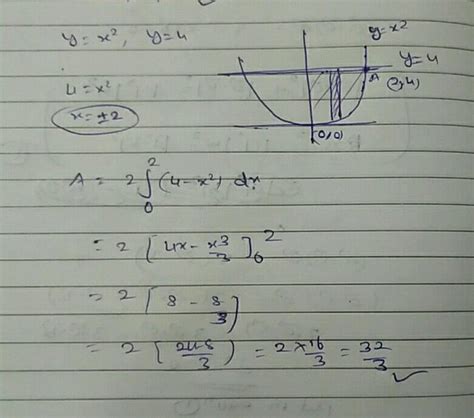 y = x², y = 4
4 = x²
x = ±2
y = x²
y = 4
A
(2,4)
(0,0)
A = 2 ∫₀² (4 - x²) dx
= 2 [4x - x³/3]₀²
= 2 [8 - 8/3]
= 2 [24-8/3] = 2 × 16/3 = 32/3 ✓